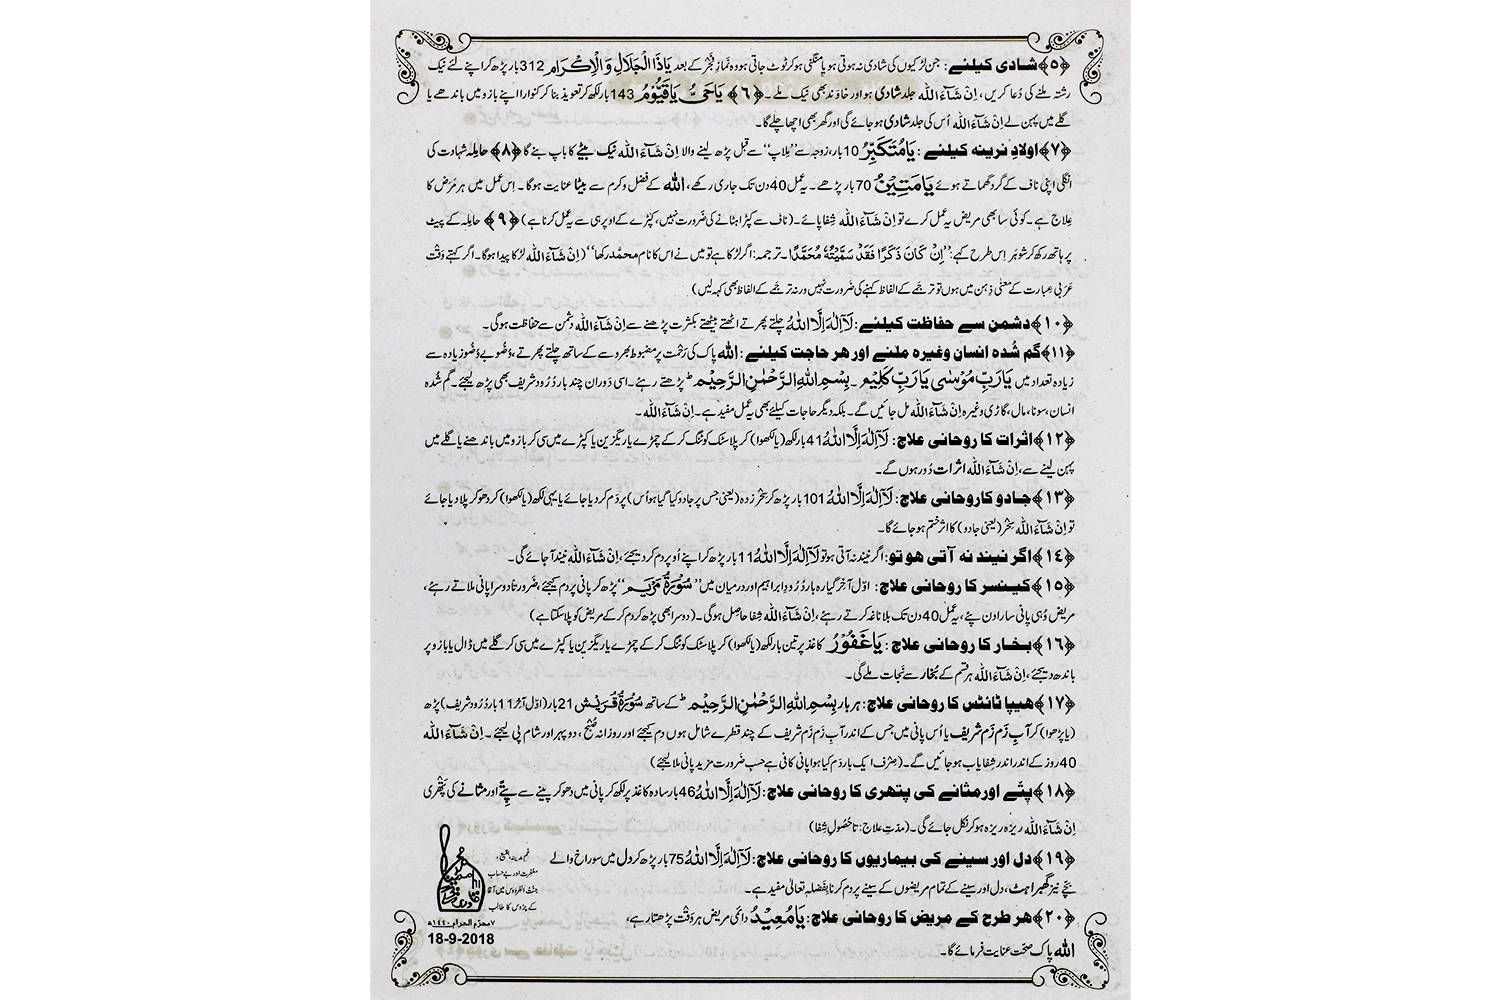 ﴿۵﴾شادی کیلئے : جن لڑکیوں کی شادی نہ ہوتی ہو یا منگنی ہو کر ٹوٹ جاتی ہو وہ نمازِ فجر کے بعد یَاذَا الْجَلَالِ وَالْاِکْرَام 312 بار پڑھ کر اپنے لئے نیک
رشتہ ملنے کی دُعا کریں، اِنْ شَآءَاللہ جلد شادی ہو اور خاوند بھی نیک ملے۔ ﴿۶﴾ یَاحَیُّ یَاقَیُّوْمُ 143 بار لکھ کر تعویذ بنا کر کنوارا اپنے بازو میں باندھے یا
گلے میں پہن لے اِنْ شَآءَاللہ اُس کی جلد شادی ہو جائے گی اور گھر بھی اچھا چلے گا۔
﴿۷﴾اولادِ نرینہ کیلئے : یَامُتَکَبِّرُ 10 بار، زوجہ سے ”مِلاپ“ سے قبل پڑھ لینے والا اِنْ شَآءَاللہ نیک بیٹے کا باپ بنے گا ﴿۸﴾ حامِلہ شہادت کی
انگلی اپنی ناف کے گرد گھماتے ہوئے یَامَتِیْنُ 70 بار پڑھے۔ یہ عمل 40 دن تک جاری رکھے، اللہ کے فضل و کرم سے بیٹا عنایت ہوگا۔ اِس عمل میں ہر مَرَض کا
عِلاج ہے۔ کوئی سا بھی مریض یہ عمل کرے تو اِنْ شَآءَاللہ شِفا پائے۔ (ناف سے کپڑا ہٹانے کی ضَرورت نہیں، کپڑے کے اوپر ہی سے یہ عمل کرنا ہے) ﴿۹﴾ حامِلہ کے پیٹ
پر ہاتھ رکھ کر شوہر اِس طرح کہے: ”اِنْ کَانَ ذَکَرًا فَقَدْ سَمَّیْتُهٗ مُحَمَّدًا ۔ ترجمہ: اگر لڑکا ہے تو میں نے اس کا نام محمّد رکھا“ (اِنْ شَآءَاللہ لڑکا پیدا ہوگا۔ اگر کہتے وَقْت
عَرَبی عِبارت کے معنٰی ذِہن میں ہوں تو ترجَمے کے الفاظ کہنے کی ضَرورت نہیں ورنہ ترجَمے کے الفاظ بھی کہہ لیں)
﴿۱۰﴾دشمن سے حفاظت کیلئے: لَآ اِلٰهَ اِلَّا اللہُ چلتے پھرتے اٹھتے بیٹھتے بکثرت پڑھنے سے اِنْ شَآءَاللہ دشمن سے حفاظت ہوگی۔
﴿۱۱﴾گم شُدہ انسان وغیرہ ملنے اور ھر حاجت کیلئے: اللہ پاک کی رَحْمت پر مضبوط بھروسے کے ساتھ چلتے پھرتے، وُضُو بے وُضُو زیادہ سے
زیادہ تعداد میں یَارَبِّ مُوْسٰی یَارَبِّ کَلِیْم ۔ بِسْمِ اللہِ الرَّحْمٰنِ الرَّحِیْم ؕ پڑھتے رہئے۔ اسی دَوران چند بار دُرُود شریف بھی پڑھ لیجئے۔ گم شُدہ
انسان، سونا، مال، گاڑی وغیرہ اِنْ شَآءَاللہ مل جائیں گے۔ بلکہ دیگر حاجات کیلئے بھی یہ عمل مفید ہے۔ اِنْ شَآءَاللہ۔
﴿۱۲﴾اثرات کا روحانی علاج: لَآ اِلٰهَ اِلَّا اللہُ 41 بار لکھ (یا لکھوا) کر پلاسٹک کوٹنگ کر کے چمڑے یا ریگزین یا کپڑے میں سی کر بازو میں باندھنے یا گلے میں
پہن لینے سے، اِنْ شَآءَاللہ اثرات دُور ہوں گے۔
﴿۱۳﴾جادو کا روحانی علاج: لَآ اِلٰهَ اِلَّا اللہُ 101 بار پڑھ کر سِحْر زدہ (یعنی جس پر جادو کیا گیا ہو اُس) پر دَم کر دیا جائے یا یہی لکھ (یا لکھوا) کر دھو کر پلا دیا جائے
تو اِنْ شَآءَاللہ سِحْر (یعنی جادو) کا اثر ختم ہو جائے گا۔
﴿۱۴﴾اگر نیند نہ آتی ھو تو: اگر نیند نہ آتی ہو تو لَآ اِلٰهَ اِلَّا اللہُ 11 بار پڑھ کر اپنے اُوپر دم کر دیجئے، اِنْ شَآءَاللہ نیند آ جائے گی۔
﴿۱۵﴾کینسر کا روحانی علاج: اوّل آخر گیارہ بار دُرُودِ ابراہیم اور درمیان میں ”سُوْرَۃُ مَرْیَم“ پڑھ کر پانی پر دم کیجئے، ضَرورتاً دوسرا پانی ملاتے رہئے،
مریض وُہی پانی سارا دن پئے، یہ عمل 40 دن تک بلا ناغہ کرتے رہئے، اِنْ شَآءَاللہ شِفا حاصِل ہوگی۔ (دوسرا بھی پڑھ کر دم کر کے مریض کو پلا سکتا ہے)
﴿۱۶﴾بخار کا روحانی علاج : یَاغَفُوْرُ کاغذ پر تین بار لکھ (یا لکھوا) کر پلاسٹک کوٹنگ کر کے چمڑے یا ریگزین یا کپڑے میں سی کر گلے میں ڈال یا بازو پر
باندھ دیجئے، اِنْ شَآءَاللہ ہر قِسم کے بُخار سے نَجات ملے گی۔
﴿۱۷﴾ھیپا ٹائٹس کا روحانی علاج: ہر بار بِسْمِ اللہِ الرَّحْمٰنِ الرَّحِیْم ؕ کے ساتھ سُوْرَۃُ قُرَیْش 21 بار (اوّل آخر 11 بار دُرُود شریف) پڑھ
(یا پڑھوا) کر آبِ زَم زَم شریف یا اُس پانی میں جس کے اندر آبِ زَم زَم شریف کے چند قطرے شامل ہوں دم کیجئے اور روزانہ صُبْح، دو پہر اور شام پی لیجئے۔ اِنْ شَآءَاللہ
40 روز کے اندر اندر شِفا یاب ہو جائیں گے۔ (صِرف ایک بار دَم کیا ہوا پانی کافی ہے حسبِ ضَرورت مزید پانی ملا لیجئے)
﴿۱۸﴾پِتّے اور مثانے کی پتھری کا روحانی علاج: لَآ اِلٰهَ اِلَّا اللہُ 46 بار سادہ کاغذ پر لکھ کر پانی میں دھو کر پینے سے پِتّے اور مثانے کی پَتْھری
اِنْ شَآءَاللہ ریزہ ریزہ ہو کر نکل جائے گی۔ (مدّتِ علاج: تا حُصُولِ شِفا)
﴿۱۹﴾دل اور سینے کی بیماریوں کا روحانی علاج: لَآ اِلٰهَ اِلَّا اللہُ 75 بار پڑھ کر دل میں سوراخ والے
بچّے نیز گھبراہٹ، دل اور سینے کے تمام مریضوں کے سینے پر دم کرنا بِفَضْلِہٖ تعالٰی مفید ہے۔
﴿۲۰﴾ھر طرح کے مریض کا روحانی علاج: یَامُعِیْدُ دائمی مریض ہر وَقْت پڑھتا رہے،
اللہ پاک صحّت عنایت فرمائے گا۔
غمِ مدینہ، بقیع،
مغفرت اور بے حساب
جنّت الفردوس میں آقا
کے پڑوس کا طالب
۷ محرّم الحرام ۱۴۴۰ھ
18-9-2018